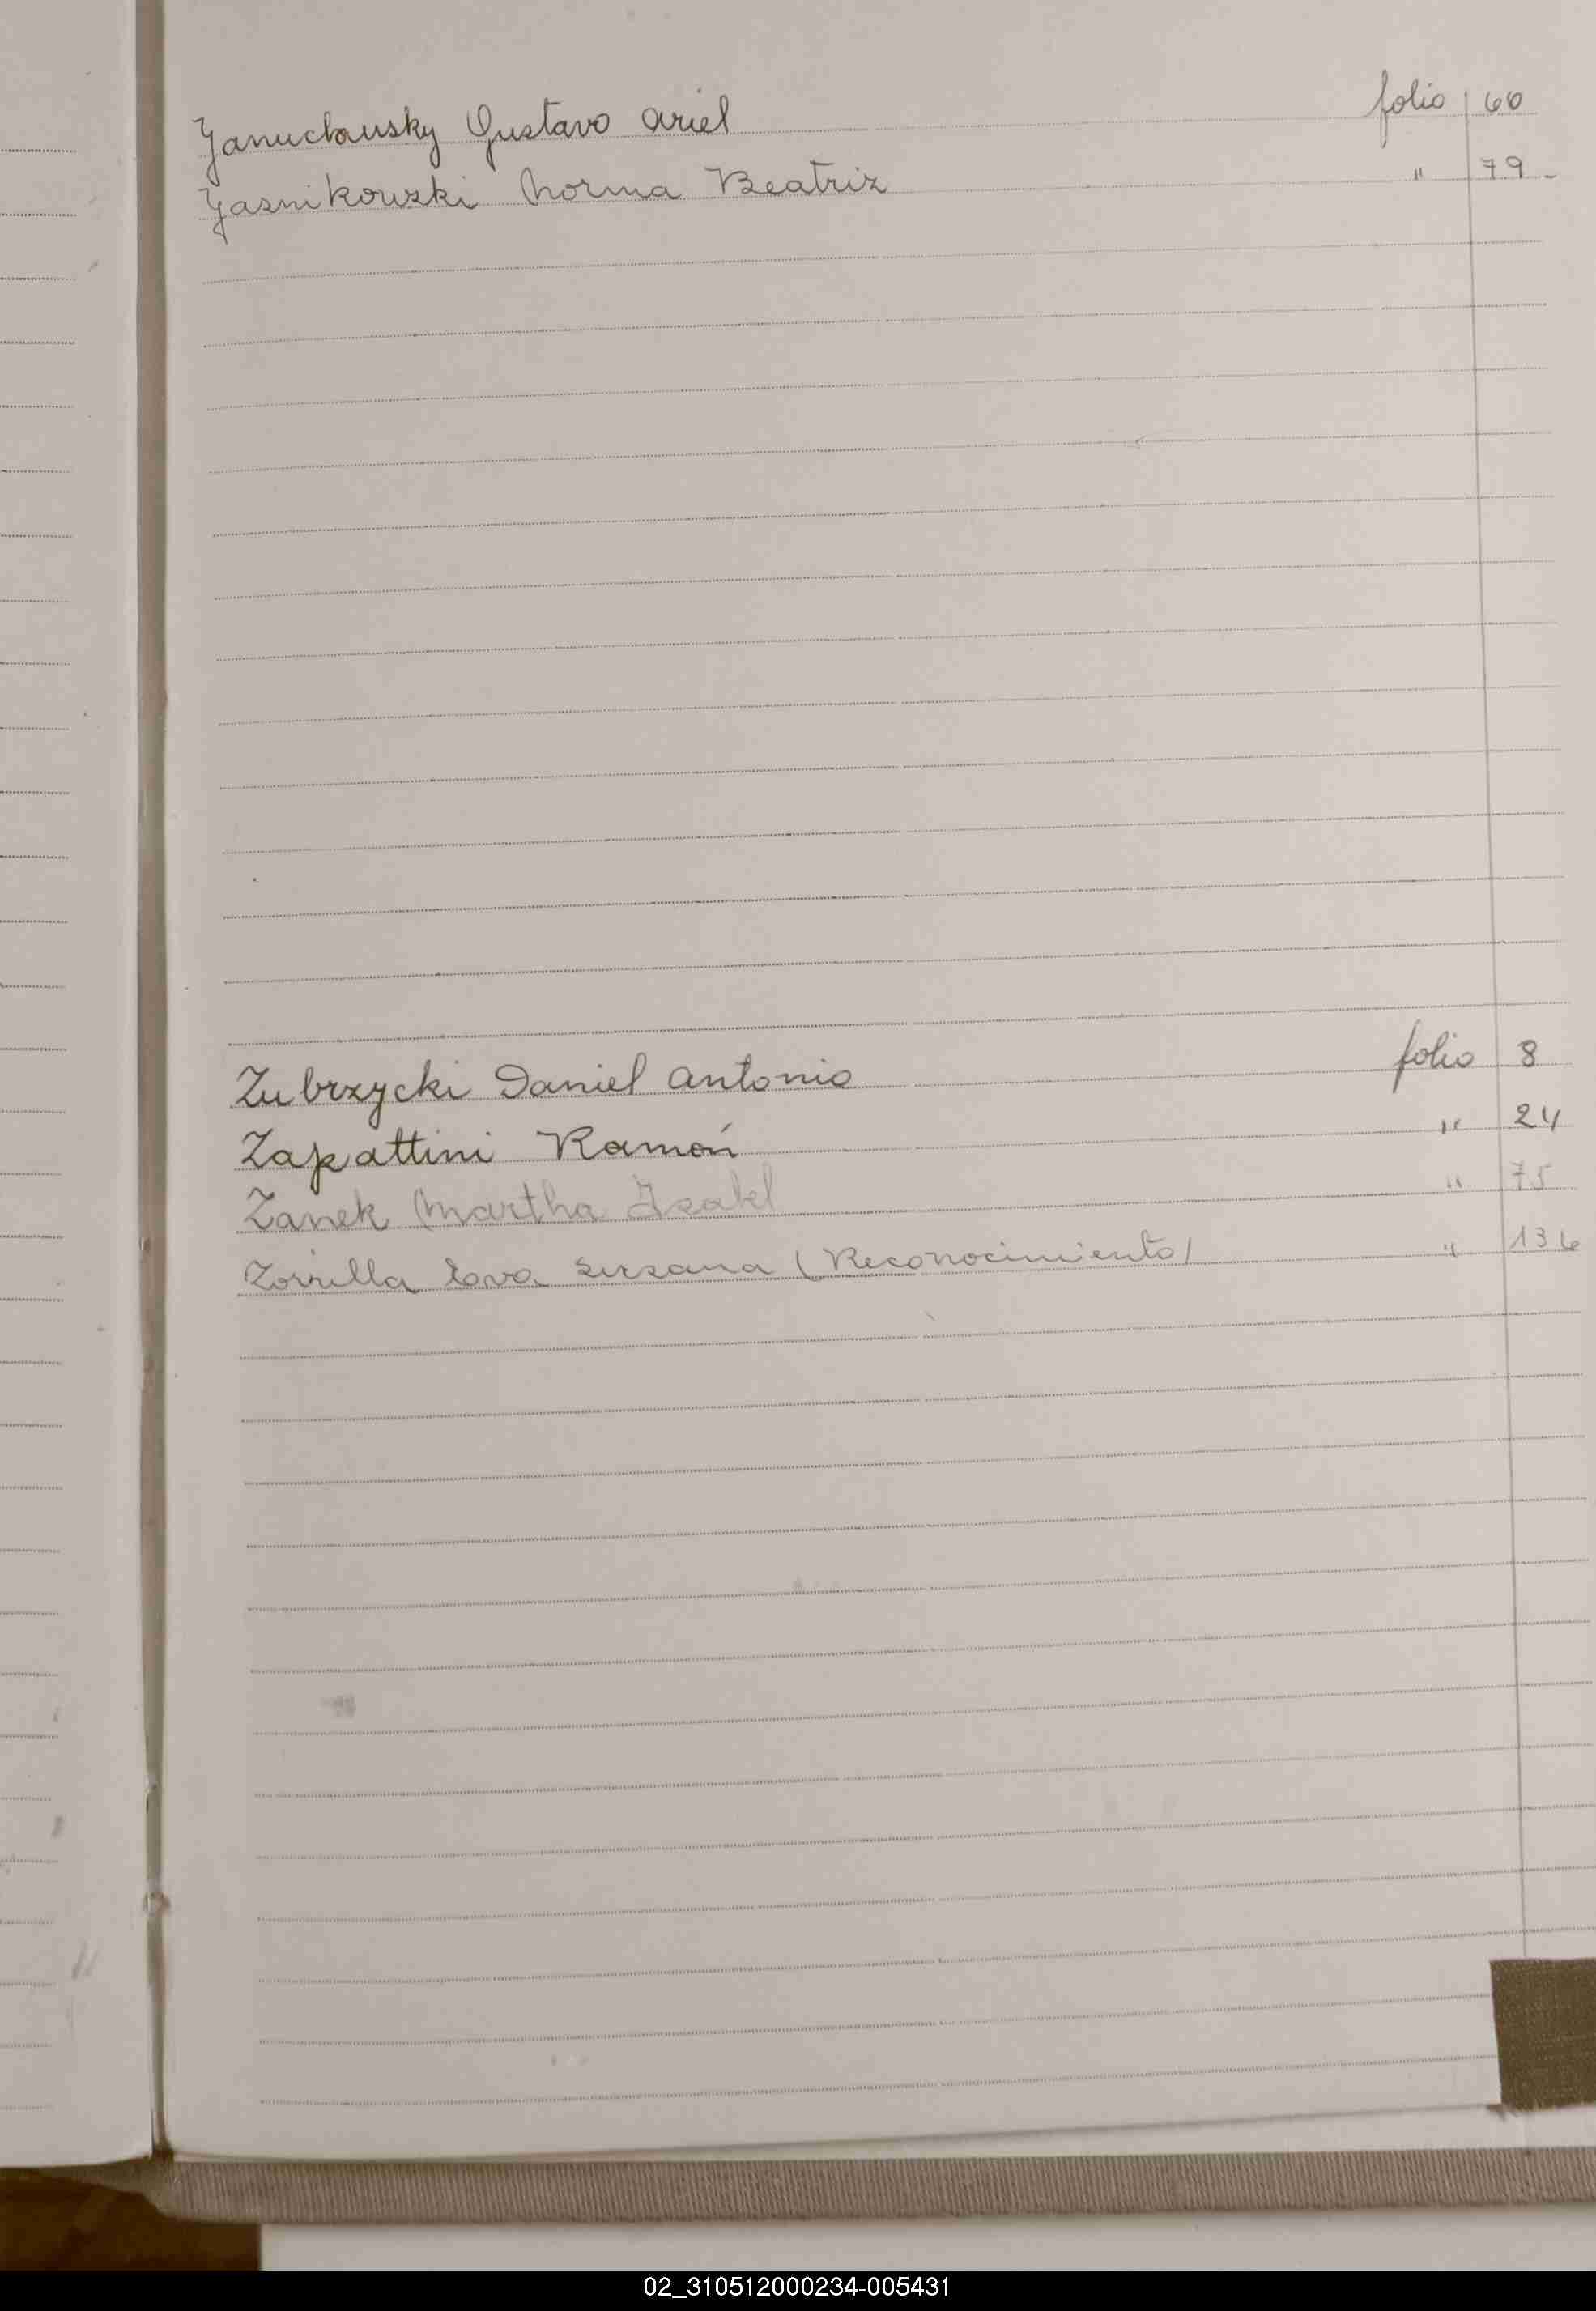 Yanuclausky Gustavo Ariel folio 60
Yasnikowski Norma Beatriz " 79-
Zubrzycki Daniel Antonio folio 8
Zapattini Ramón " 24
Zanek Martha Isabel " 75
Zorrilla Eva Susana (Reconocimiento) " 136
02_310512000234-005431